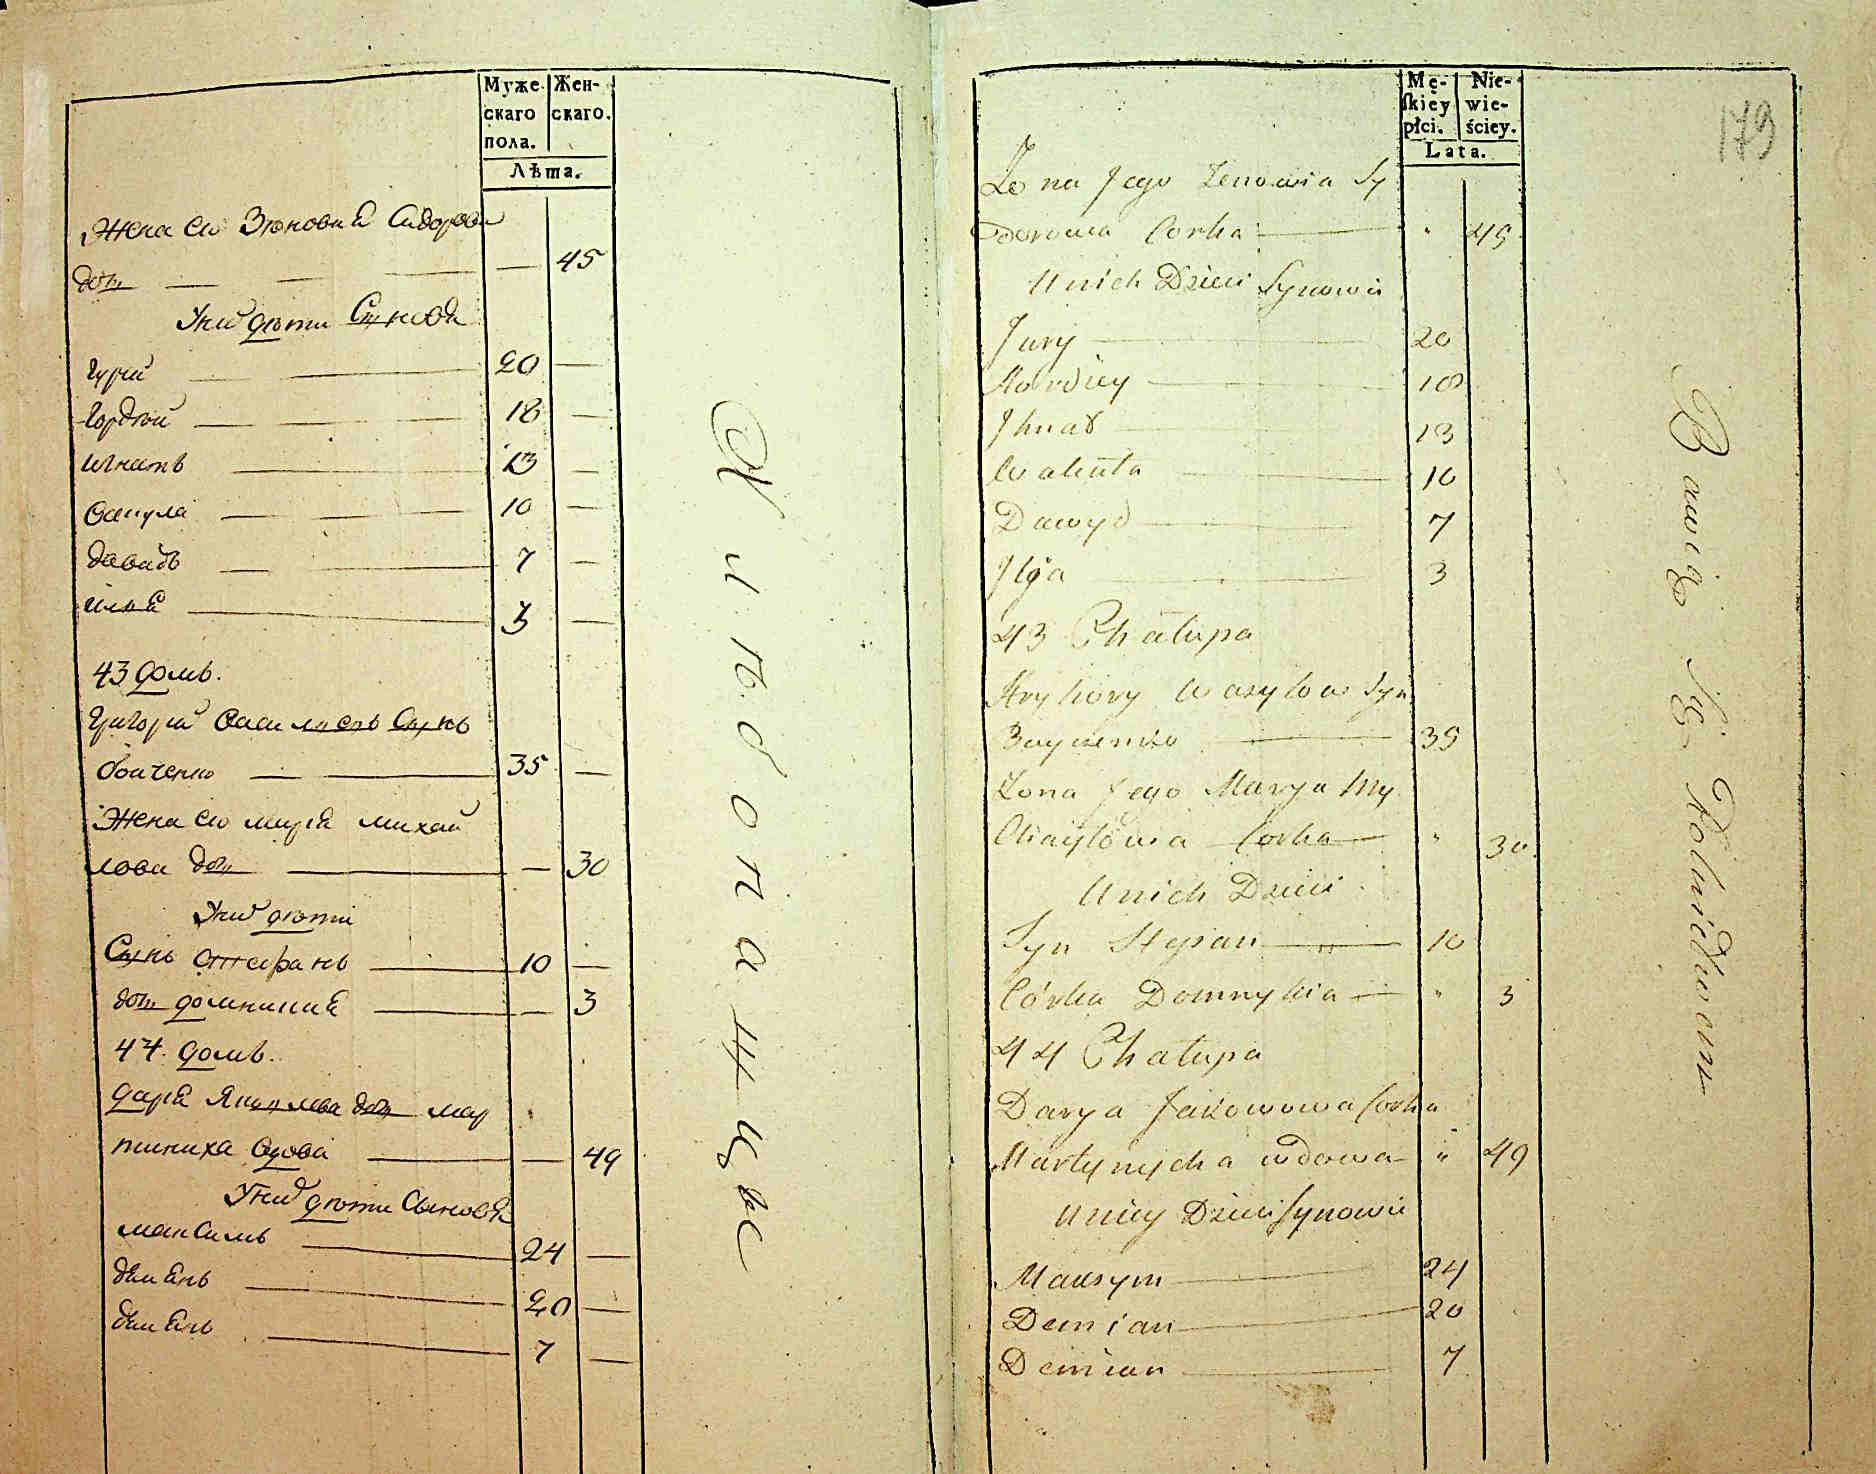 Муже- Жен-
скаго скаго.
пола.
Лѣта.
Жена ево Зѣновия Сидорова
дочь — — 45
У них дѣти Сыновя
Гурий — 20 —
Гордѣй — 18 —
Игнатъ — 13 —
Вакула — 10 —
давидъ — 7 —
илия — 3 —
43 домъ.
Григорий Василиевъ Сынъ
боиченко — 35 —
Жена ево мария михаи
лова дочь — — 30
У них дѣти
Сынъ Стефанъ — 10 —
дочь домникия — — 3
44. домъ.
дария Яковлева дочь мар
тиниха вдова — — 49
У них дѣти Сыновя
максимъ — 24 —
демянъ — 20 —
демянъ — 7 —
Хлѣбопащцы
179
Mę- Nie-
skiey wie-
płci. ściey.
Lata.
Zona Jego Zenowia Sy
dorowa Corka — " 45
U nich Dzieci Synowie
Jury — 20
Hordiey — 18
Ihnat — 13
Wakuła — 10
Dawyd — 7
Ilia — 3
43 Chałupa
Hryhory Wasylow Syn
Boyczenko — 35
Zona Jego Marya My
chayłowa Corka — " 30.
U nich Dzieci
Syn Stepan — " 10
Córka Domnykia — " 3
44 Chałupa
Darya Jakowowa Corka
Martynycha wdowa — " 49
U niey Dzieci Synowie
Maksym — 24
Demian — 20
Demian — 7
Bawią Się Rolnictwem